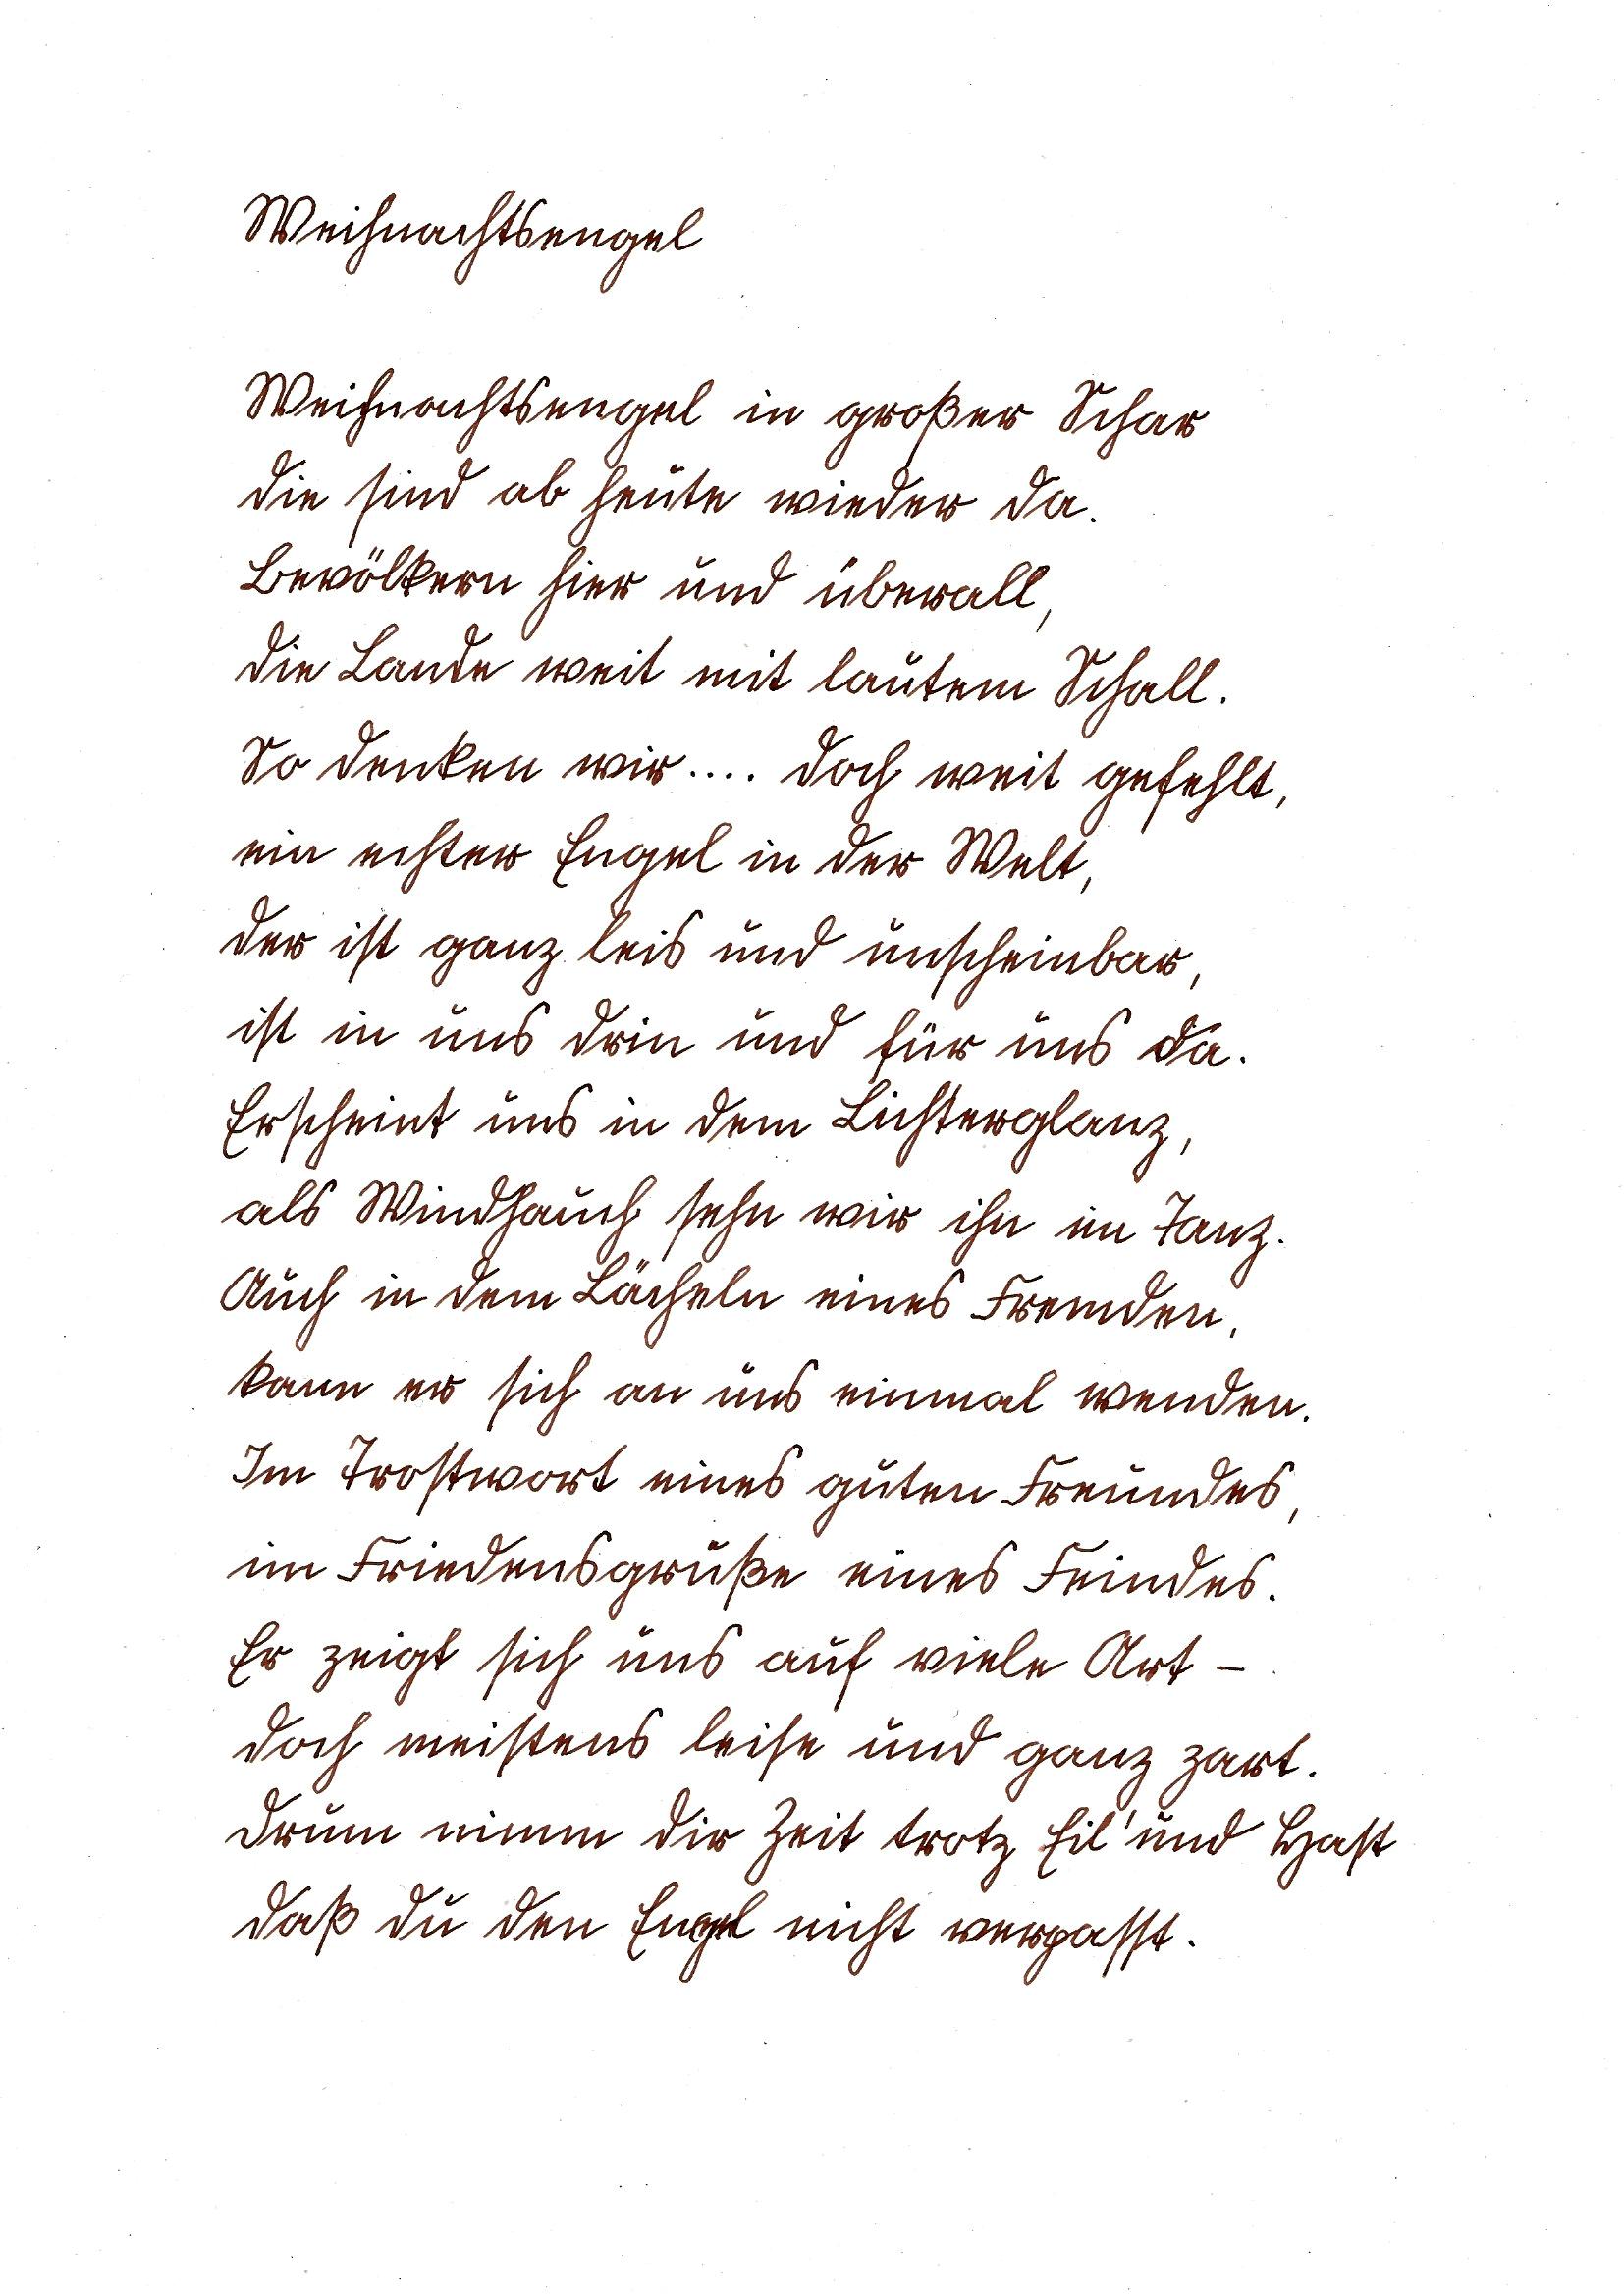 Weihnachtsengel
Weihnachtsengel in großer Schar
die sind ab heute wieder da.
Bevölkern hier und überall,
die Lande weit mit lautem Schall.
So denken wir.... doch weit gefehlt,
ein echter Engel in der Welt,
der ist ganz leis und unscheinbar,
ist in uns drin und für uns da.
Erscheint uns in dem Lichterglanz,
als Windhauch sehn wir ihn im Tanz.
Auch in dem Lächeln eines Fremden,
kann er sich an uns einmal wenden.
Im Trostwort eines guten Freundes,
im Friedensgruße eines Feindes.
Er zeigt sich uns auf viele Art –
doch meistens leise und ganz zart.
Drum nimm dir Zeit trotz Eil' und Hast
daß du den Engel nicht verpasst.